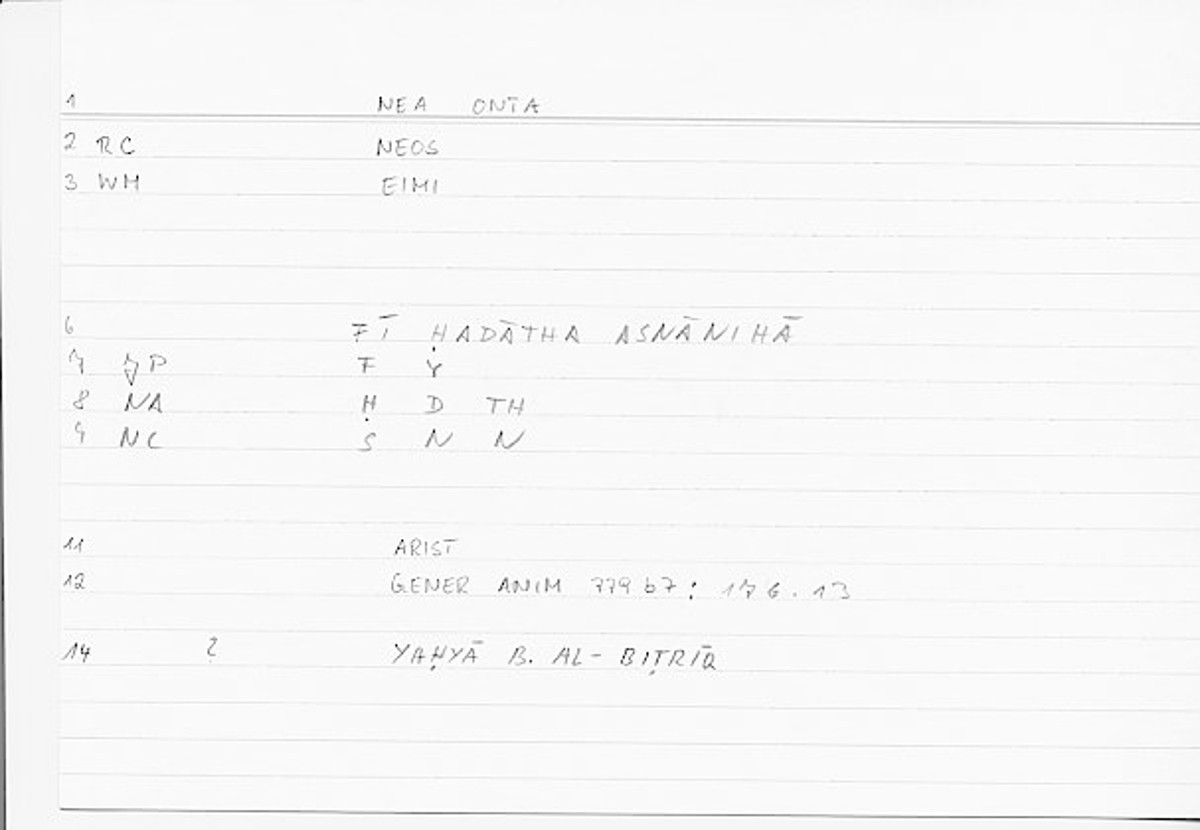 1 NEA ONTA
2 RC NEOS
3 WM EIMI
6 FĪ ḤADĀTHA ASNĀNIHĀ
7 JP F Y
8 NA Ḥ D TH
9 NC S N N
11 ARIST
12 GENER ANIM 779 b7 : 176 . 13
14 ? YAḤYĀ B. AL-BIṬRĪQ